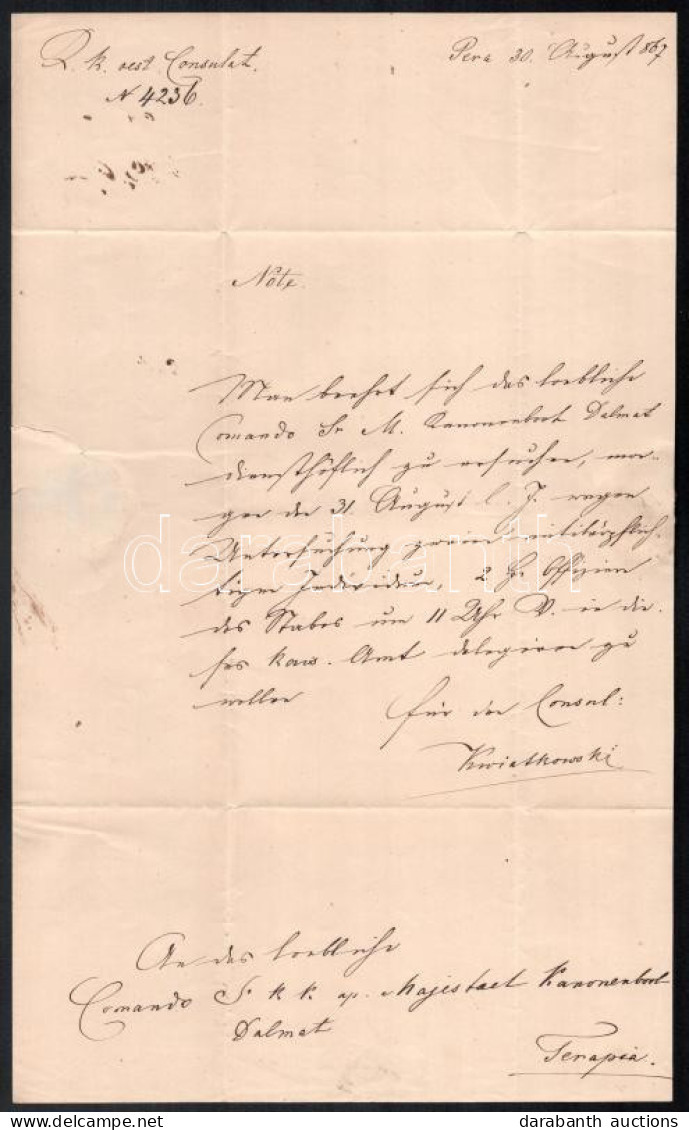 K. k. oest. Consulat.
N 4236.
Pera 30. August 867
Note
Man beehrt sich das loebliche
Comando Sr. M. Kanonenboot Dalmat
diensthöflich zu ersuchen, mor-
gen den 31. August l. J. wegen
Untersuchung zweier militärpflich-
tigen Individuen, 2 H. Offiziere
des Stabes um 11 Uhr V. in die-
ses kais. Amt delegiren zu
wollen
für den Consul:
Kwiatkowski
darabanth
An das loebliche
Comando S. k. k. ap. Majestaet Kanonenboot
Dalmat
Terapia.
www.delcampe.net
darabanth auctions